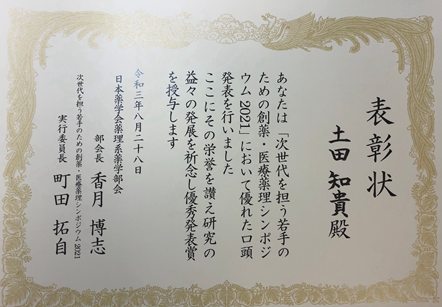 表彰状
土田 知貴 殿
あなたは「次世代を担う若手の
ための創薬・医療薬理シンポジ
ウム2021」において優れた口頭
発表を行いました
ここにその栄誉を讃え研究の
益々の発展を祈念し優秀発表賞
を授与します
令和三年八月二十八日
日本薬学会薬理系薬学部会
部会長 香月 博志
次世代を担う若手のための創薬・医療薬理シンポジウム2021
実行委員長 町田 拓自